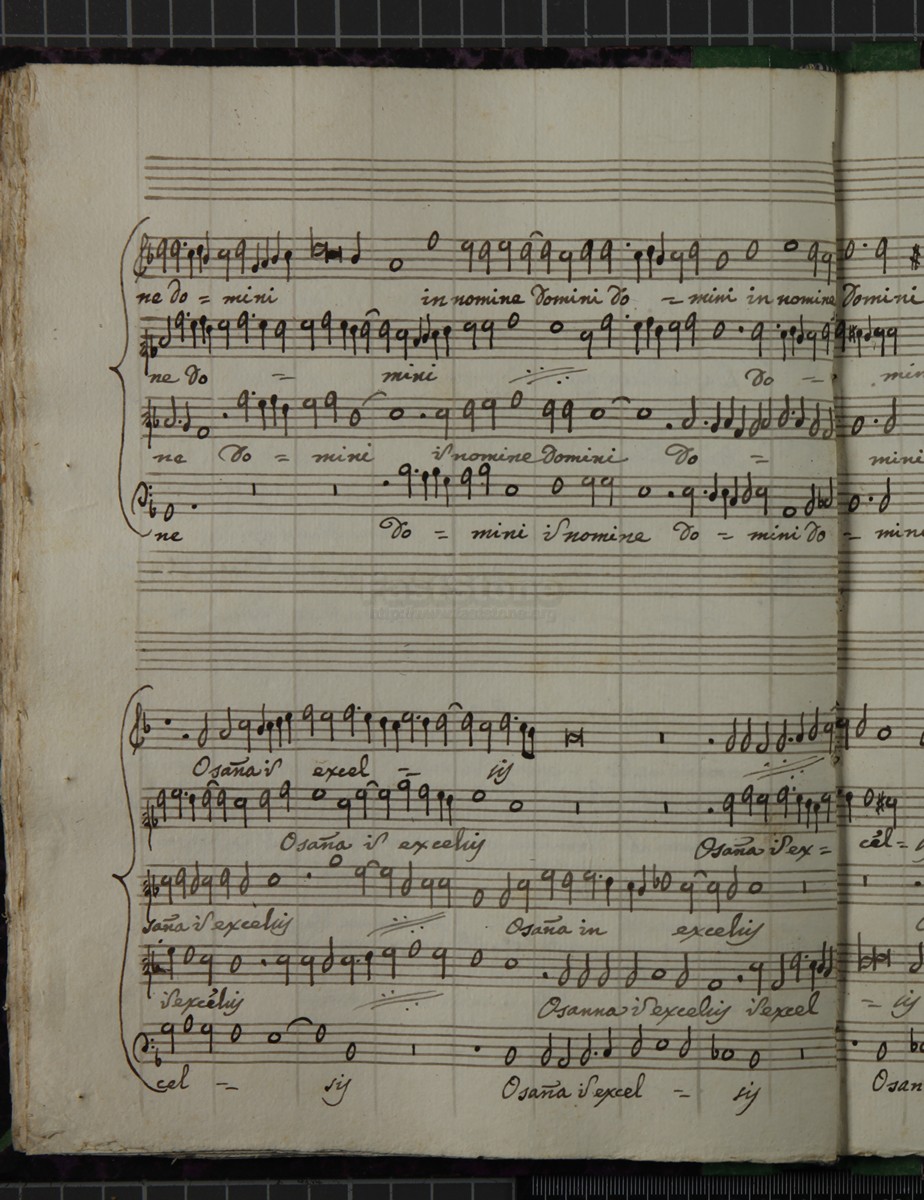 ne do = mini in nomine Domini do = mini in nomine Domini
ne do = mini do = min
ne Do = mini ĩ nomine Domini do = mini
ne do = mini ĩ nomine do = mini do = min
Osaña ĩ excel = sis
Osaña ĩ excelsis Osaña ĩ ex = cel =
saña ĩ excelsis Osaña in excelsis
ĩ excelsis Osanna ĩ excelsis ĩ excel = sis
cel = sis Osaña ĩ excel = sis Osan